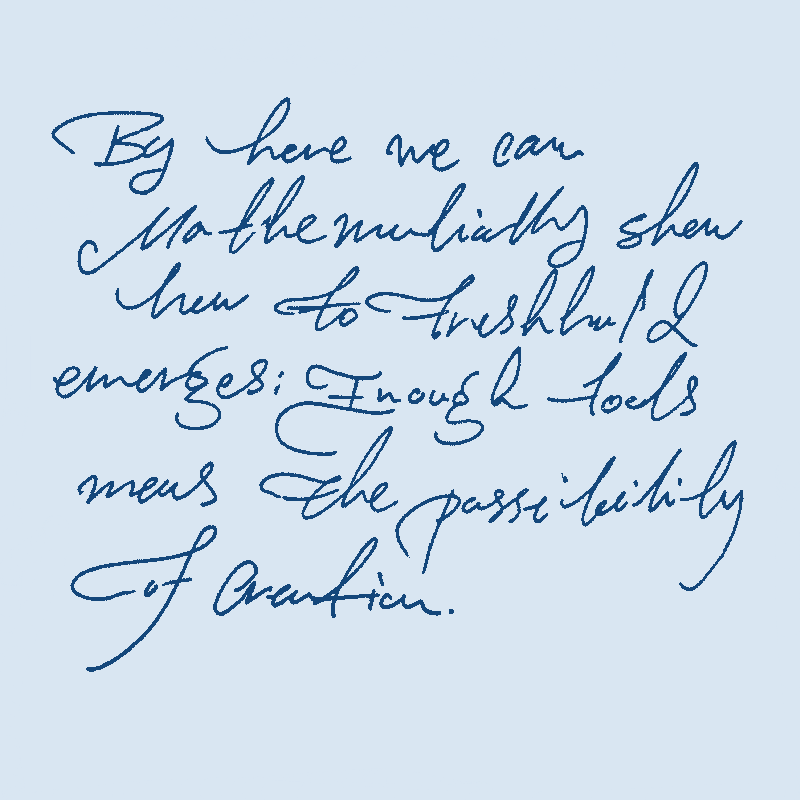 By here we can
Mathematically show
how to freshhold
emerges: Inough tools
means the possibility
of creation.